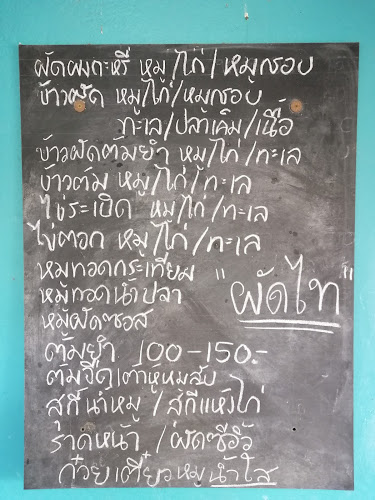 ผัดผงกะหรี่ หมู/ไก่/หมูกรอบ
ข้าวผัด หมู/ไก่/หมูกรอบ
ทะเล/ปลาเค็ม/เนื้อ
ข้าวผัดต้มยำ หมู/ไก่/ทะเล
ข้าวต้ม หมู/ไก่/ทะเล
ไข่ระเบิด หมู/ไก่/ทะเล
ไข่ตอก หมู/ไก่/ทะเล
หมูทอดกระเทียม
หมูทอดน้ำปลา
"ผัดไท"
หมูผัดซอส
ต้มยำ 100-150.-
ต้มจืด เต้าหู้หมูสับ
สุกี้น้ำหมู / สุกี้แห้งไก่
ราดหน้า / ผัดซีอิ้ว
ก๋วยเตี๋ยวหมู น้ำใส